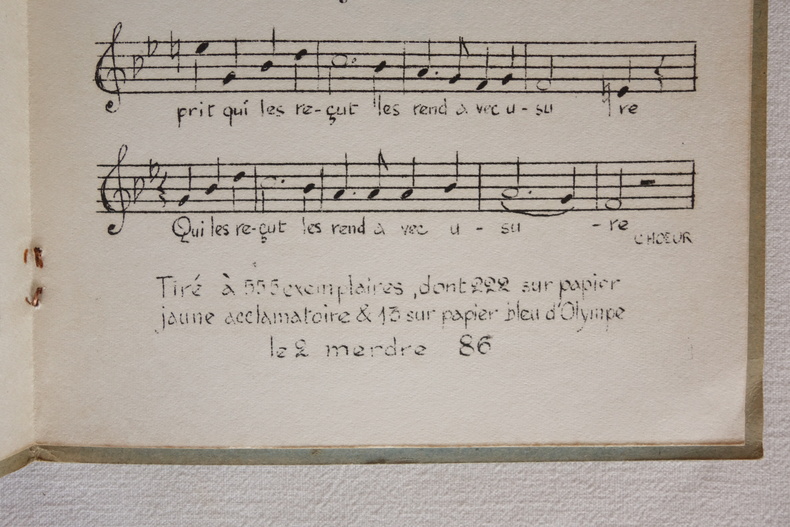 prit qui les re-çut les rend a vec u-su re
Qui les re-çut les rend a vec u - su - re
CHOEUR
Tiré à 555 exemplaires, dont 222 sur papier
jaune acclamatoire & 13 sur papier bleu d'Olympe
le 2 merdre 86